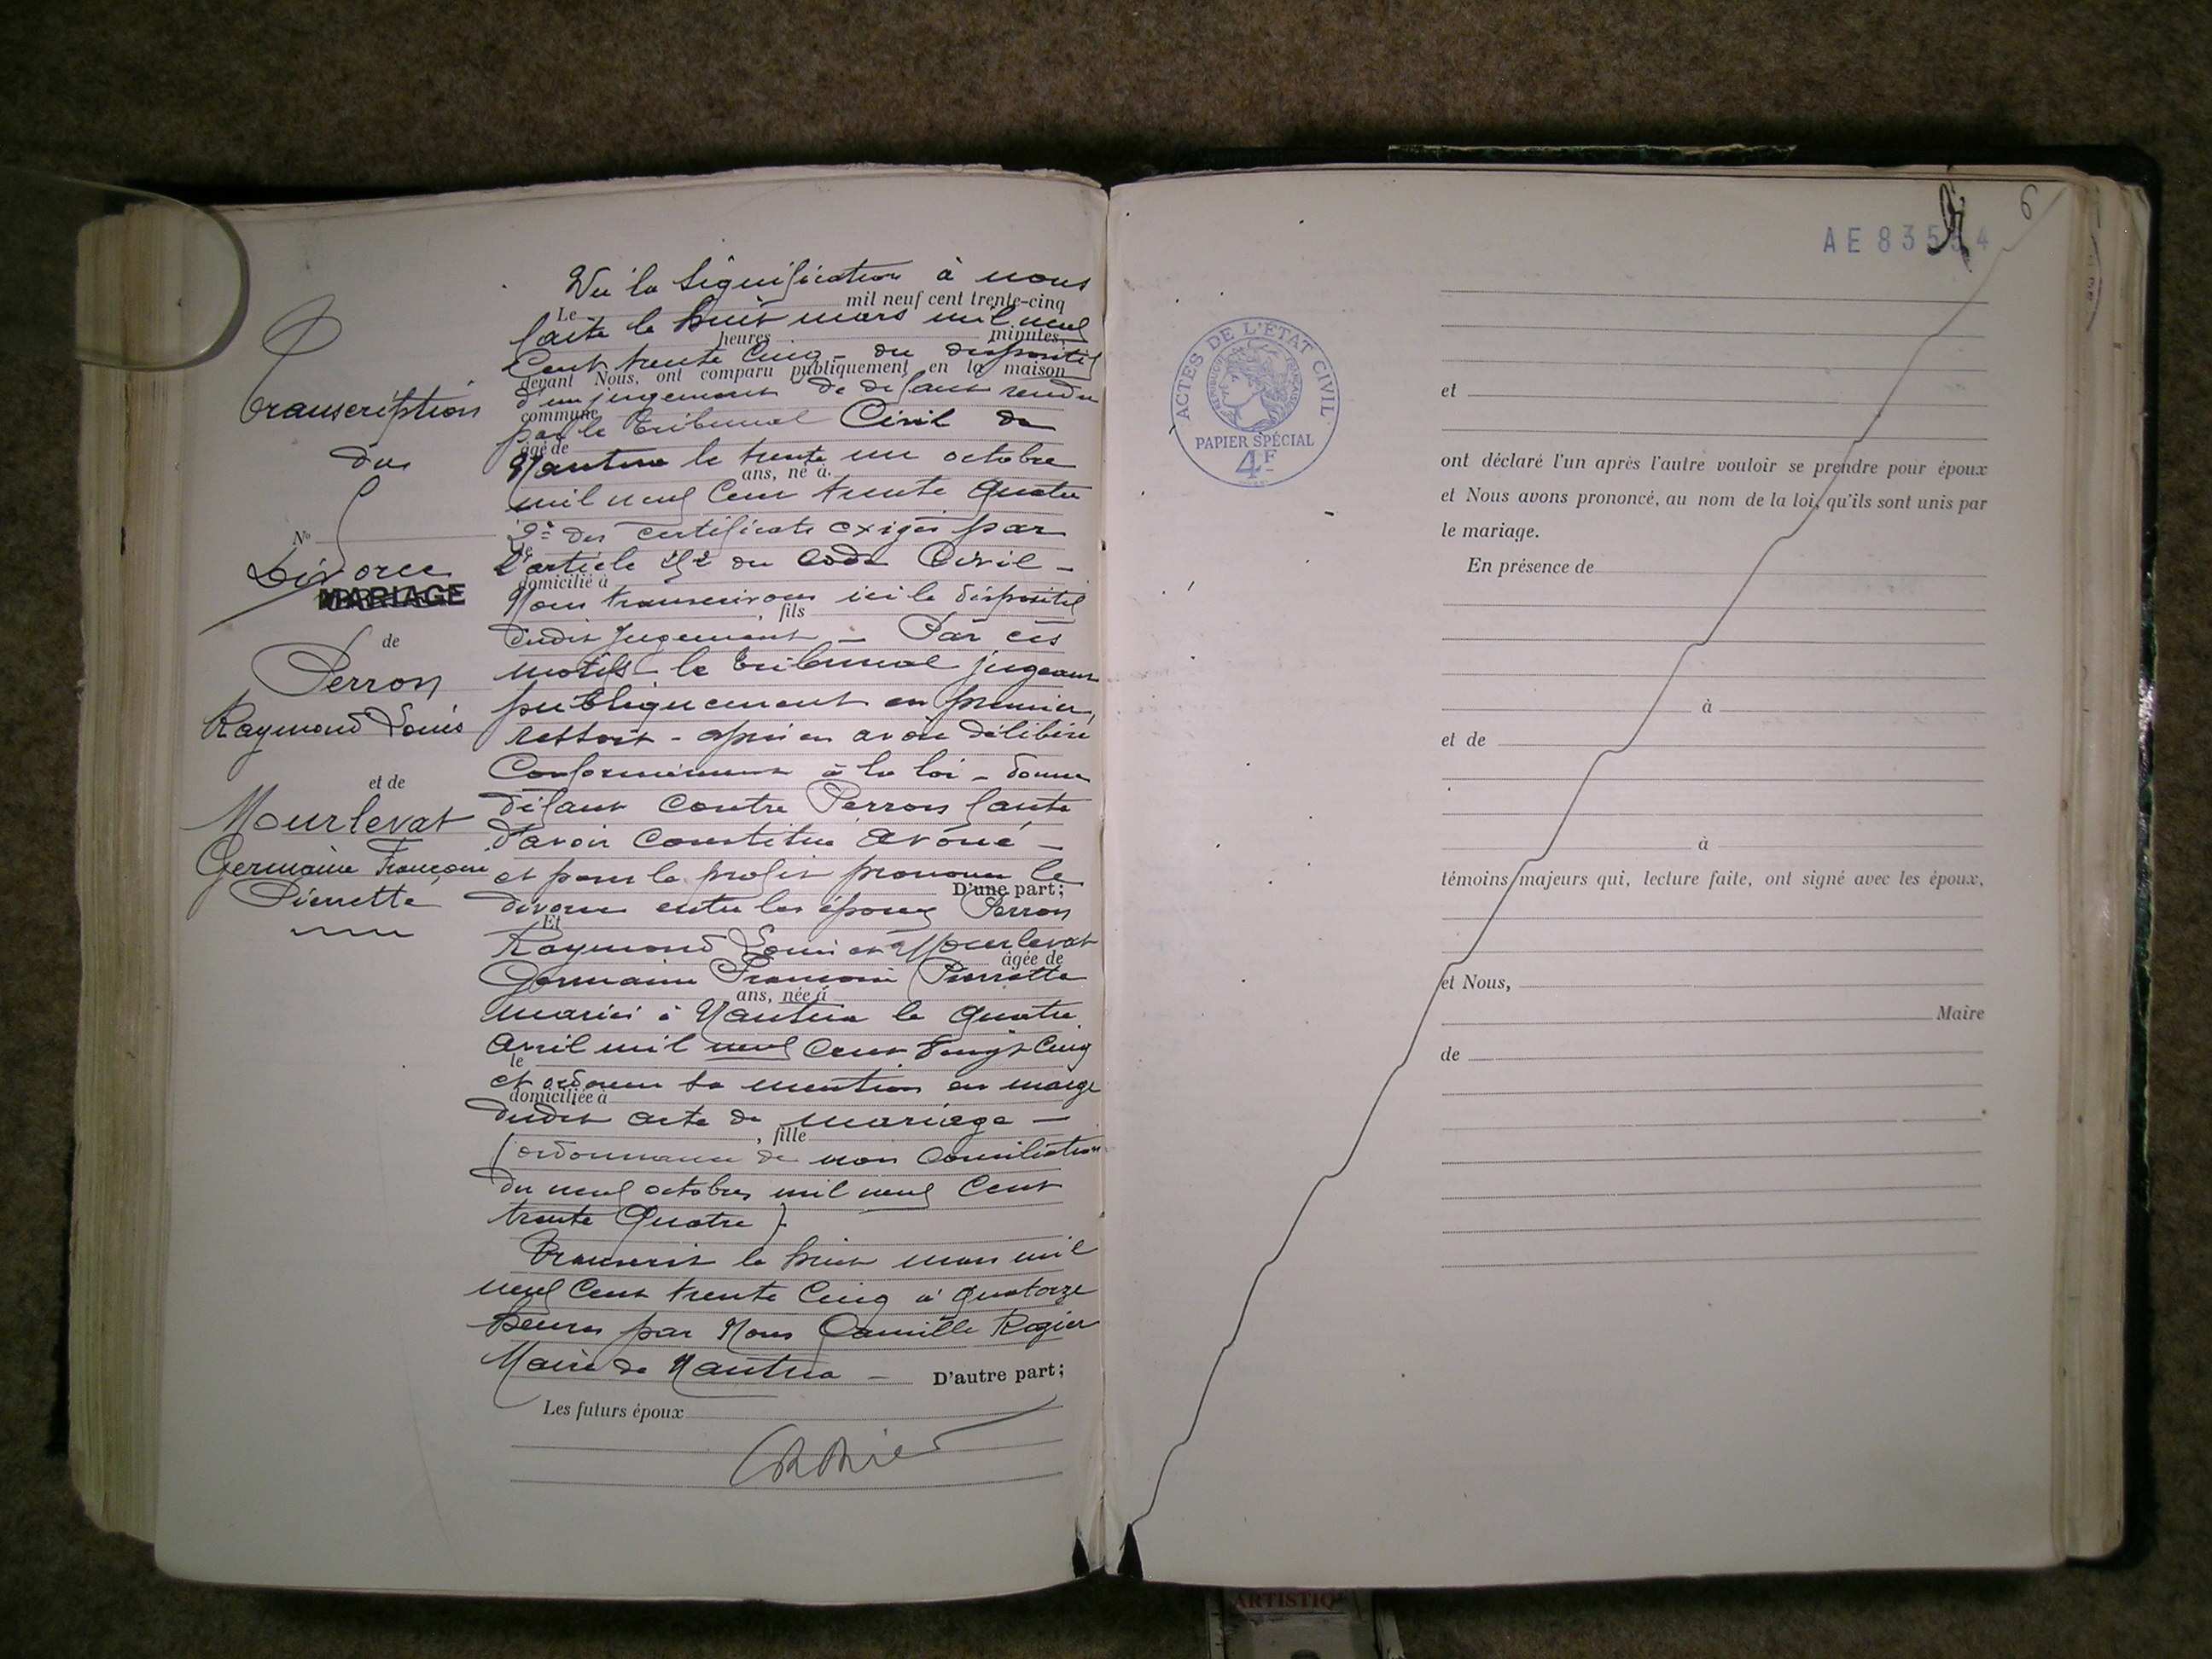 Transcription
du
N°
Divorce
MARIAGE
de
Perron
Raymond Louis
et de
Mourlevat
Germaine Françoise
Pierrette
Vu la Signification à nous
Le mil neuf cent trente-cinq
faite le huit mars mil neuf
heures minutes,
Cent trente Cinq - du dispositif
devant Nous, ont comparu publiquement en la maison
d'un jugement de défaut rendu
commune
par le Tribunal Civil de
âgé de
Nantua le trente un octobre
ans, né à
mil neuf Cent trente quatre
2° des certificats exigés par
le
l'article 252 du Code Civil -
domicilié à
Nous transcrivons ici le dispositif
, fils
dudit Jugement - Par ces
motifs - le Tribunal jugeant
publiquement en premier
ressort - après en avoir délibéré
Conformément à la loi - donne
défaut contre Perron faute
d'avoir Constitué avoué -
et pour le profit prononce le
D'une part;
divorce entre les époux Perron
Et
Raymond Louis et Mourlevat
âgée de
Germaine Françoise Pierrette
ans, née à
mariés à Nantua le quatre
avril mil neuf Cent vingt Cinq
le
et ordonne sa mention en marge
domiciliée à
dudit acte de mariage -
, fille
(ordonnance de non Conciliation
du neuf octobre mil neuf Cent
trente Quatre)
Transcrit le huit mars mil
neuf Cent trente Cinq à quatorze
heures par Nous Camille Rogier
Maire de Nantua -
D'autre part;
Les futurs époux
6
AE 83554
ACTES DE L'ÉTAT CIVIL
RÉPUBLIQUE FRANÇAISE
PAPIER SPÉCIAL
4F
et
ont déclaré l'un après l'autre vouloir se prendre pour époux
et Nous avons prononcé, au nom de la loi, qu'ils sont unis par
le mariage.
En présence de
à
et de
à
témoins majeurs qui, lecture faite, ont signé avec les époux,
et Nous,
Maire
de
ARTISTIQ